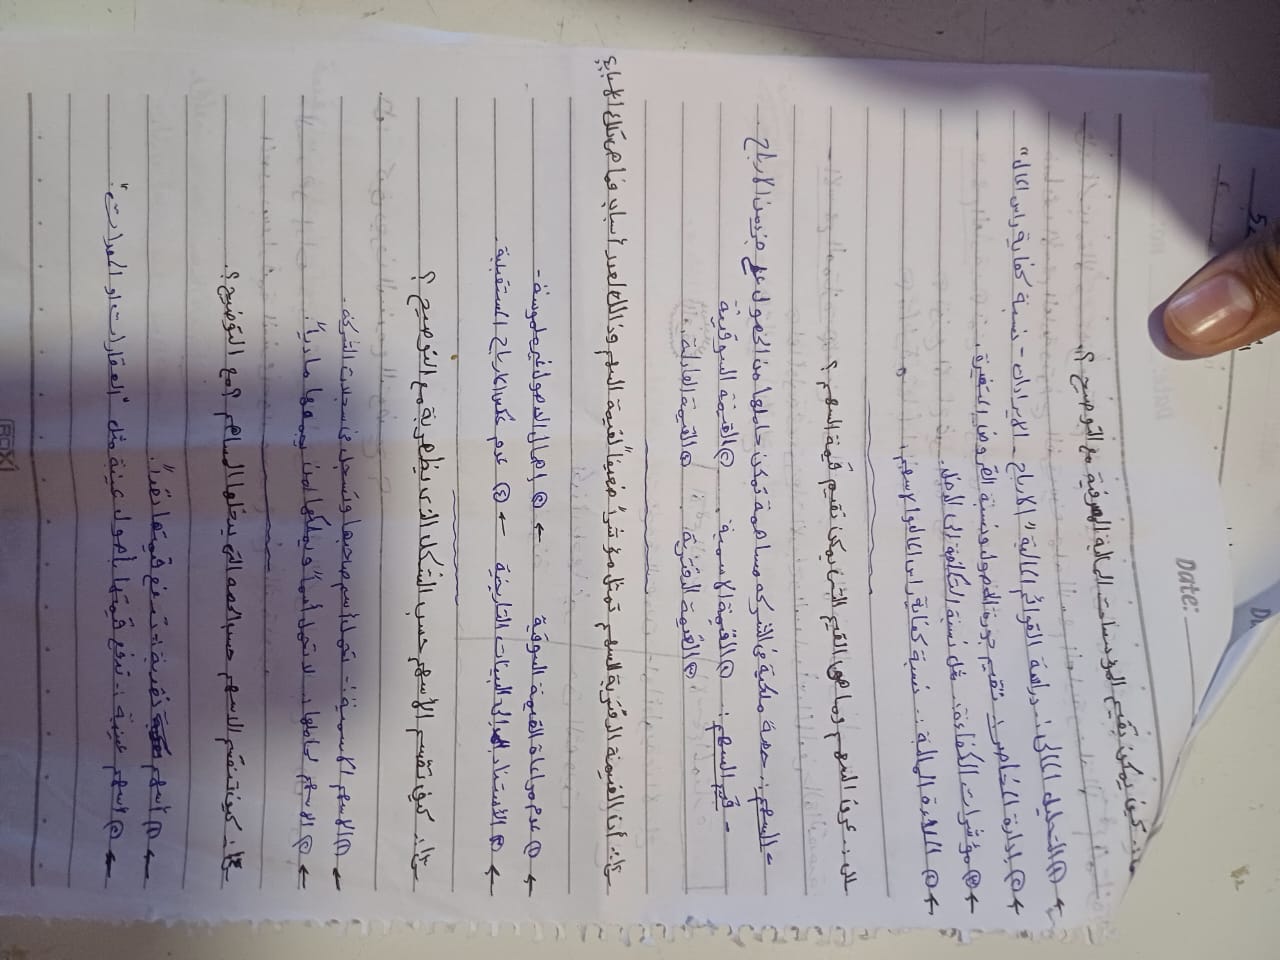 Date:
كيف يمكن تقيم المؤسسات المالية المصرفية مع التوضيح ؟.
← ① التحليل المالى :- دراسة القوائم المالية "الارباح - الايرادات - نسبة كفاية راس المال"
← ② إدارة المخاطر : تقيم جودة الاصول ونسبة القروض المتغيرة .
← ③ مؤشرات الكفاءة :. مثل نسبة التكلفة إلى الدخل .
← ④ الملاءة المالية :. نسبة كفاية راس المال والاسهم .
س :. عرف السهم وما هى القيم التى يمكن تقيم قيمة السهم ؟
- السهم :. حصة ملكية فى الشركه مساهمة تمكن حاملها من الحصول على جزء من الارباح .
- قيم السهم : ① القيمة الاسمية . ② القيمة السوقية
③ القيمة الدفترية : ④ القيمة العادلة .
أن القيمة الدفترية للسهم تمثل مؤشراً ضعيفاً لقيمة السهم وذالك لعدد أسباب فما هى تلك الاسباب؟
← ① عدم مراعاة القيمة السوقية ← ② إهمال الاصول غير ملموسة -
← ③ الأستناد إلى البينات التاريخية ← ④ عدم عكس الارباح المستقبلية .
كيف تقسم الأسهم حسب الشكل الذى يظهر بة مع التوضيح ؟
← ① الاسهم الاسمية :- تحمل أسم صاحبها وتسجل فى سجلات الشركه .
← ② الاسهم لحاملها :. لا تحمل أسماً ويملكها من يحملها مادياً .
كيف تنقسم الاسهم حسب الحصه التى يدخلها المساهم ؟ مع التوضيح ؟.
← ① أسهم نقدية :- تدفع قيمتها نقداً .
← ② اسهم عينية :. تدفع قيمتها بأصول عينية مثل "العقارات او المعدات" .
ROXI